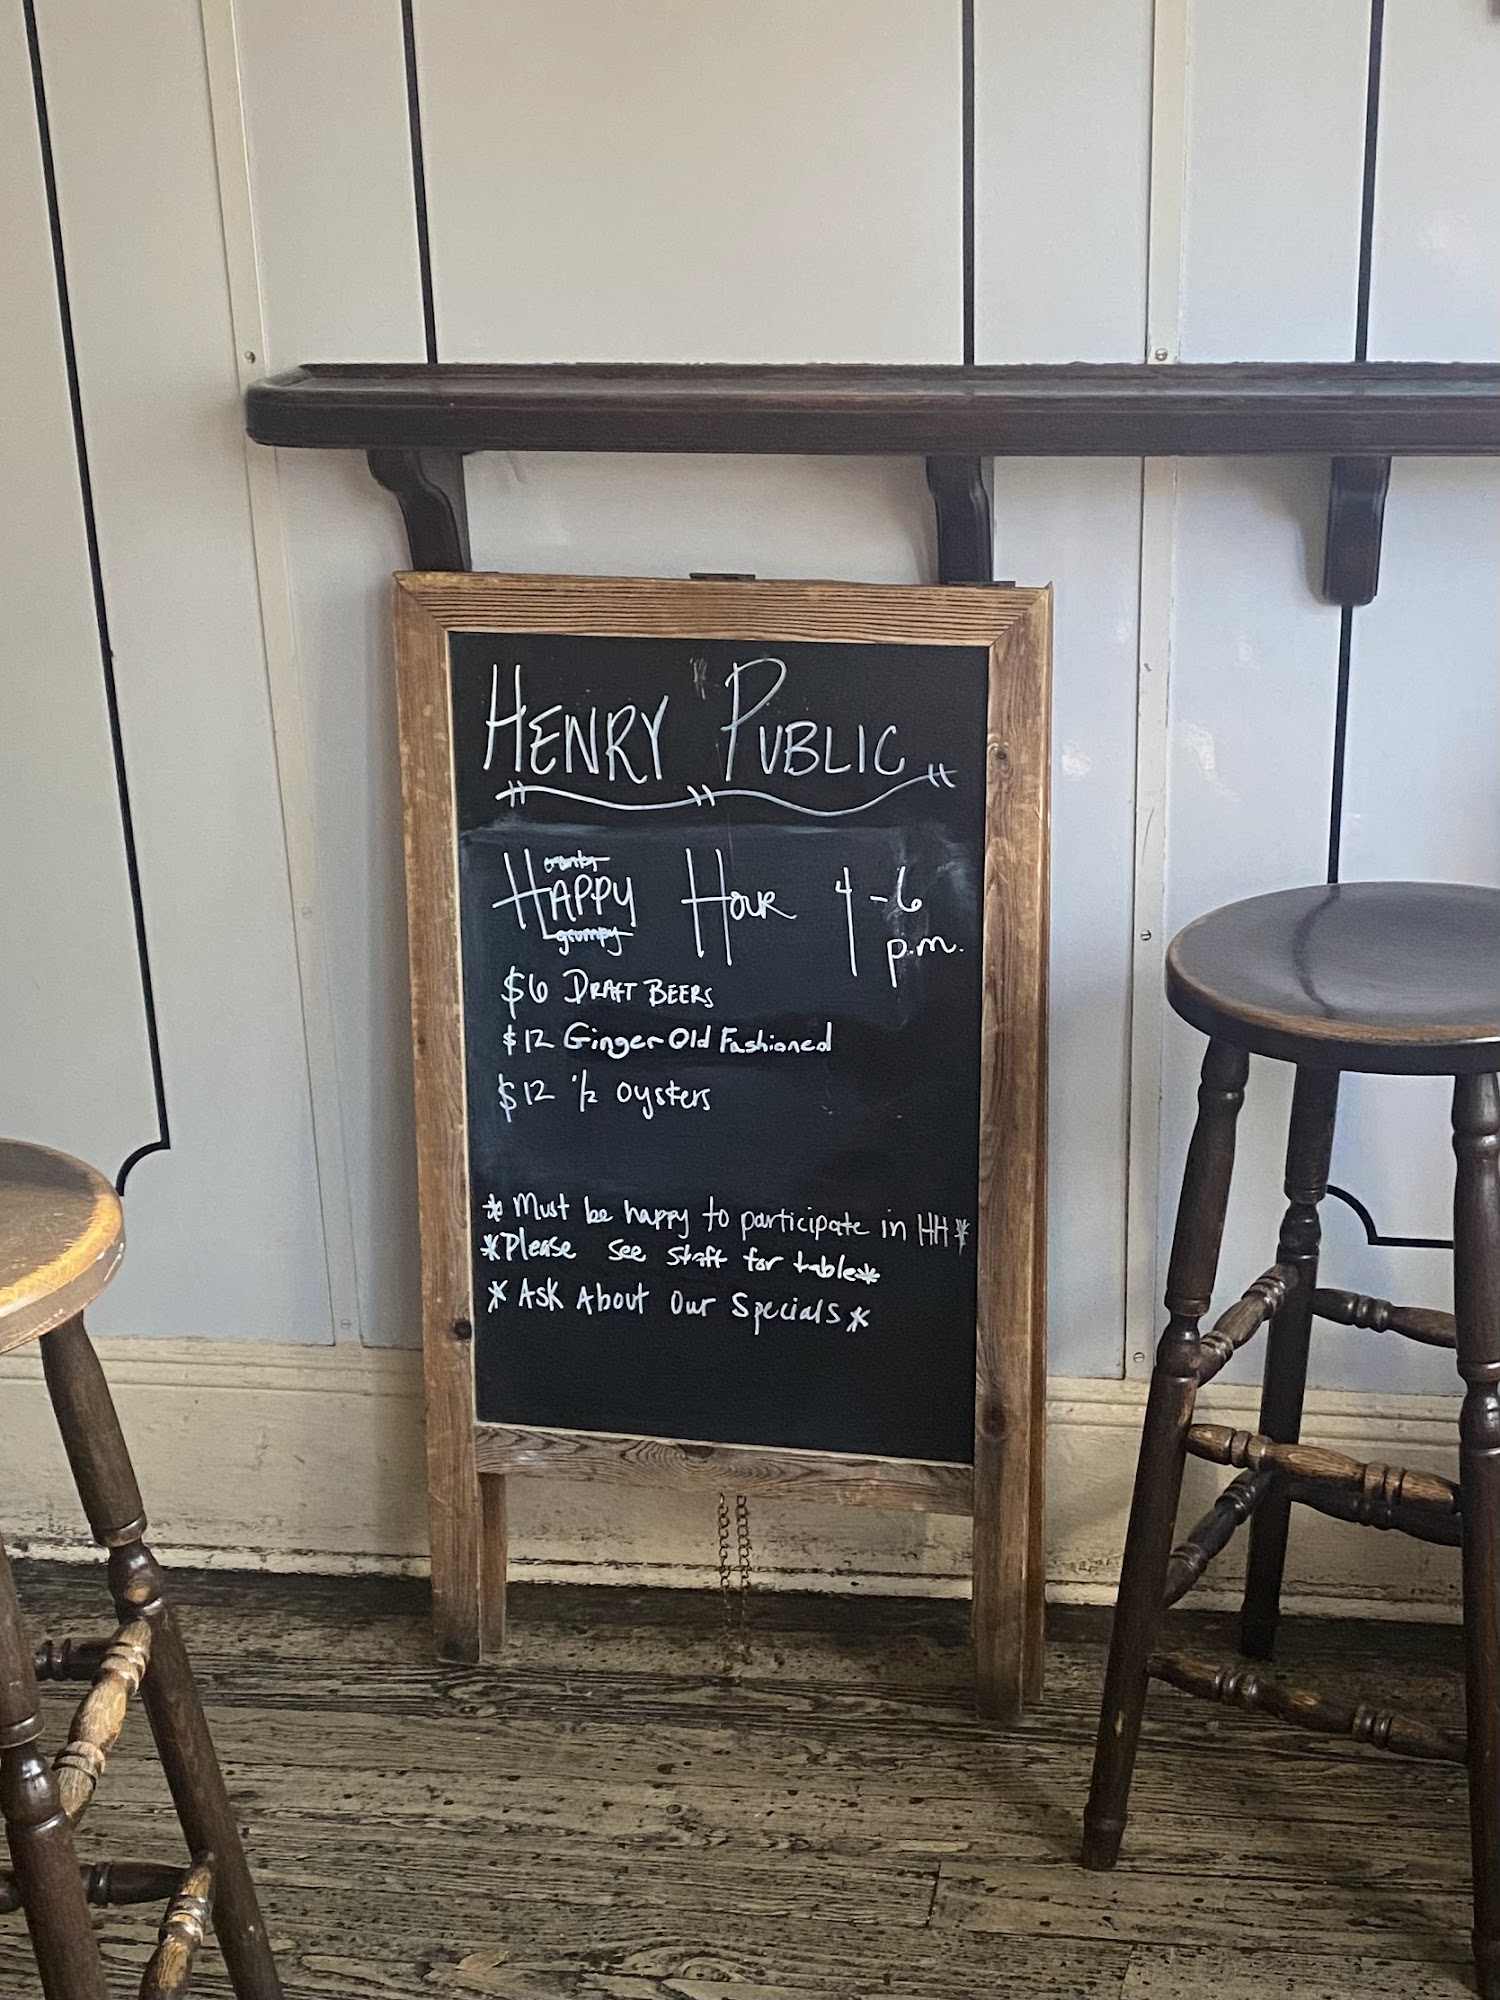 HENRY PUBLIC
cranky
HAPPY HOUR 4-6
grumpy
p.m.
$6 DRAFT BEERS
$12 Ginger Old Fashioned
$12 1/2 oysters
* Must be happy to participate in HH *
*Please see staff for table*
* Ask About Our Specials *